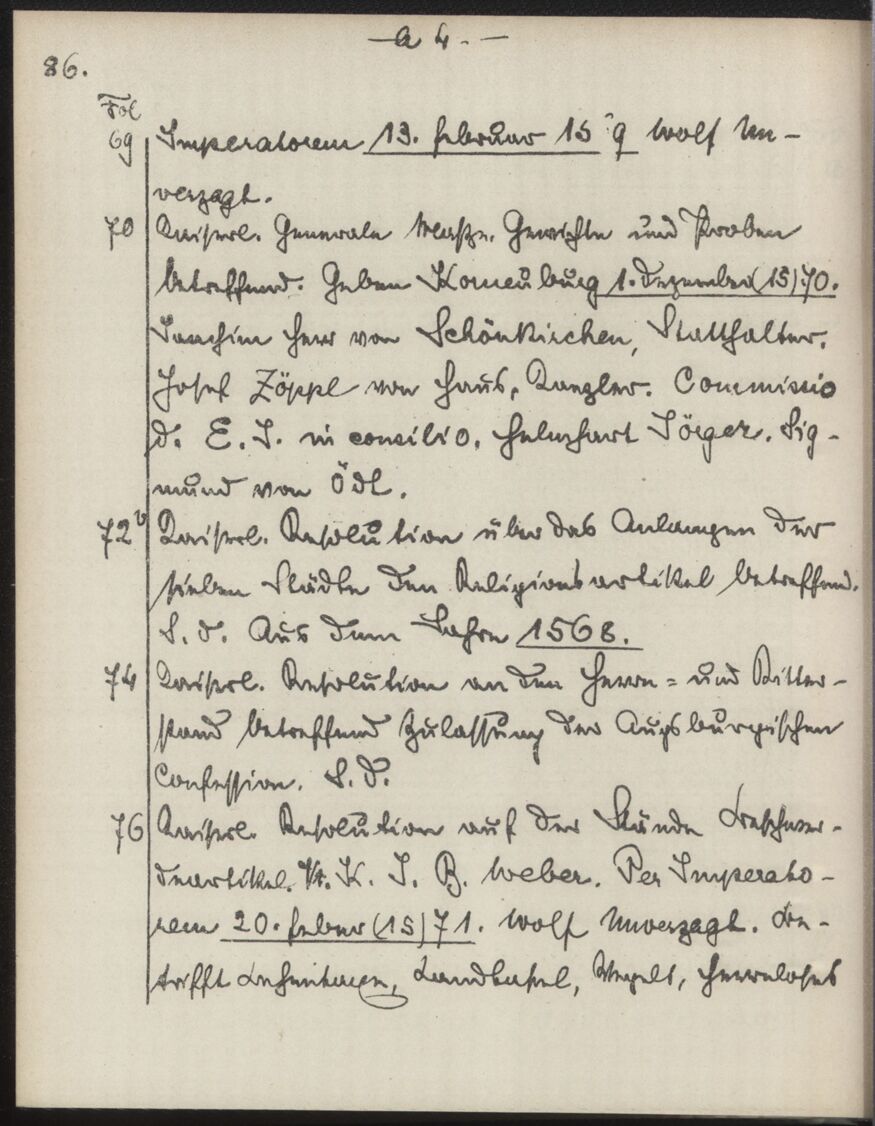 — A 4. —
86.
Fol
69 Imperatorem 13. Februar 15?9 Wolf Un-
verzagt.
70 Kaiserl. Generale Masze, Gewichte und Proben
betreffend. Geben Korneuburg 1. Dezember (15)70.
Joachim Herr von Schönkirchen, Statthalter.
Josef Zöppl von Haus, Kanzler. Commissio
d. E. I. in consilio. Helmhart Jörger. Sig-
mund von Ödl.
72v Kaiserl. Resolution über das Anlangen der
sieben Städte den Religionsartikel betreffend.
S. d. Aus dem Jahre 1568.
74 Kaiserl. Resolution an den Herrn= und Ritter-
stand betreffend Zulassung der Augsburgischen
Confession. S. d.
76 Kaiserl. Resolution auf der Stände Beschwer-
deartikel. Vt. K. J. B. Weber. Per Imperato-
rem 20. Feber (15)71. Wolf Unverzagt. Be-
trifft Lehentaxe, Landtafel, Vogelt, Herrenloses